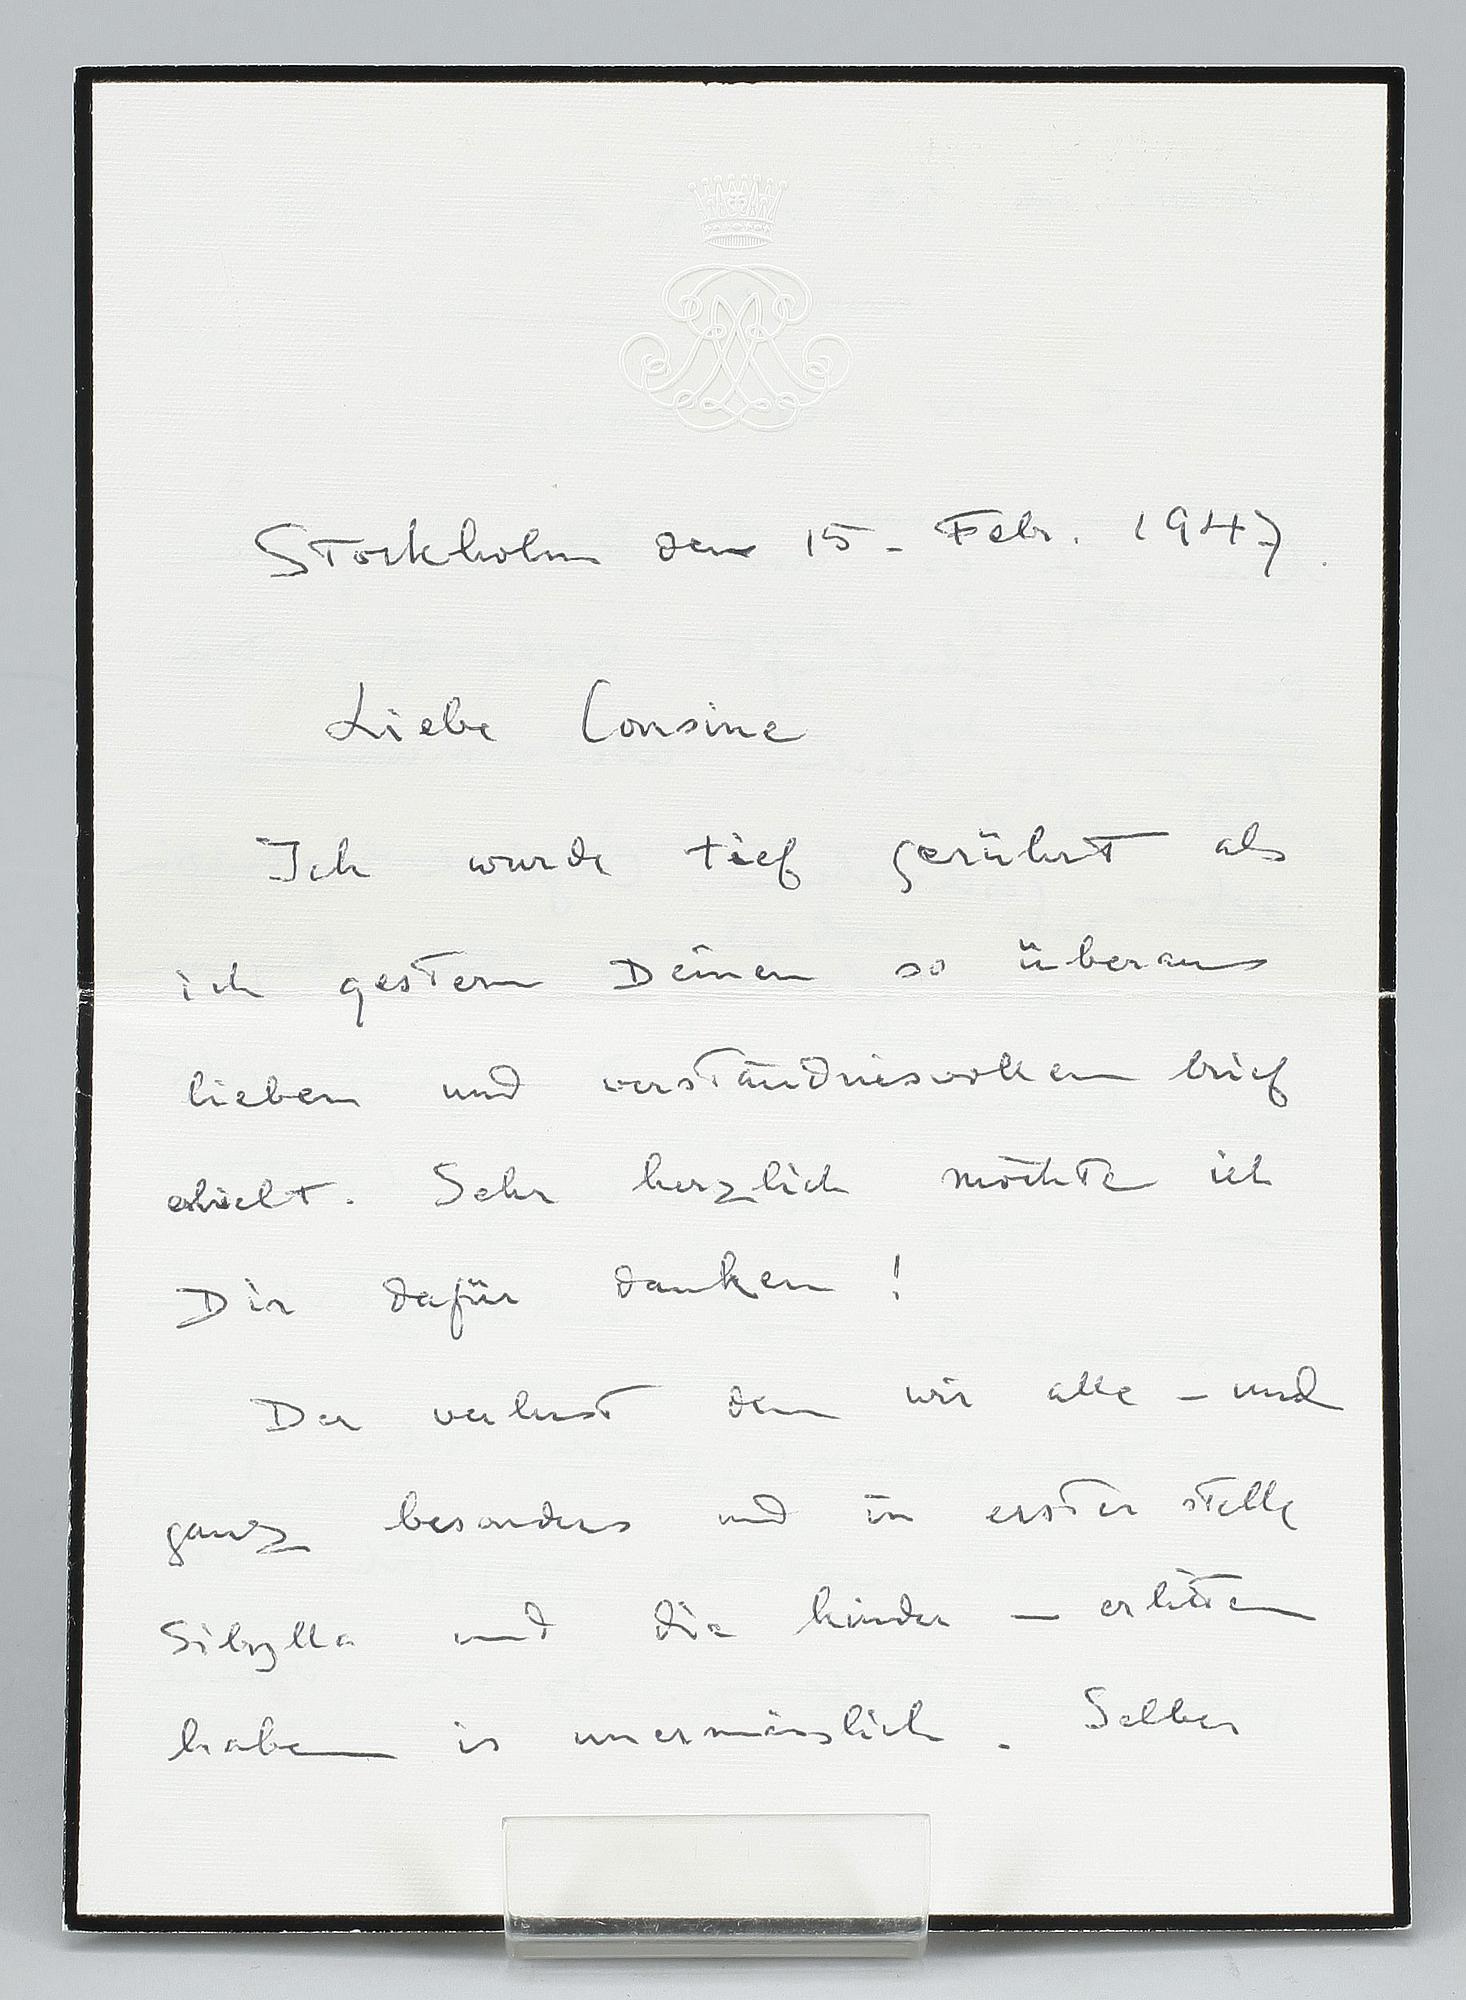 Stockholm den 15. Febr. 1947.
Liebe Cousine
Ich wurde tief gerührt als
ich gestern Deinen so überaus
lieben und verständnisvollen brief
erhielt. Sehr herzlich möchte ich
Dir dafür danken!
Der verlust den wir alle – und
ganz besonders und in erster stelle
Sibylla und die kinder – erlitten
haben is unermässlich. Selber